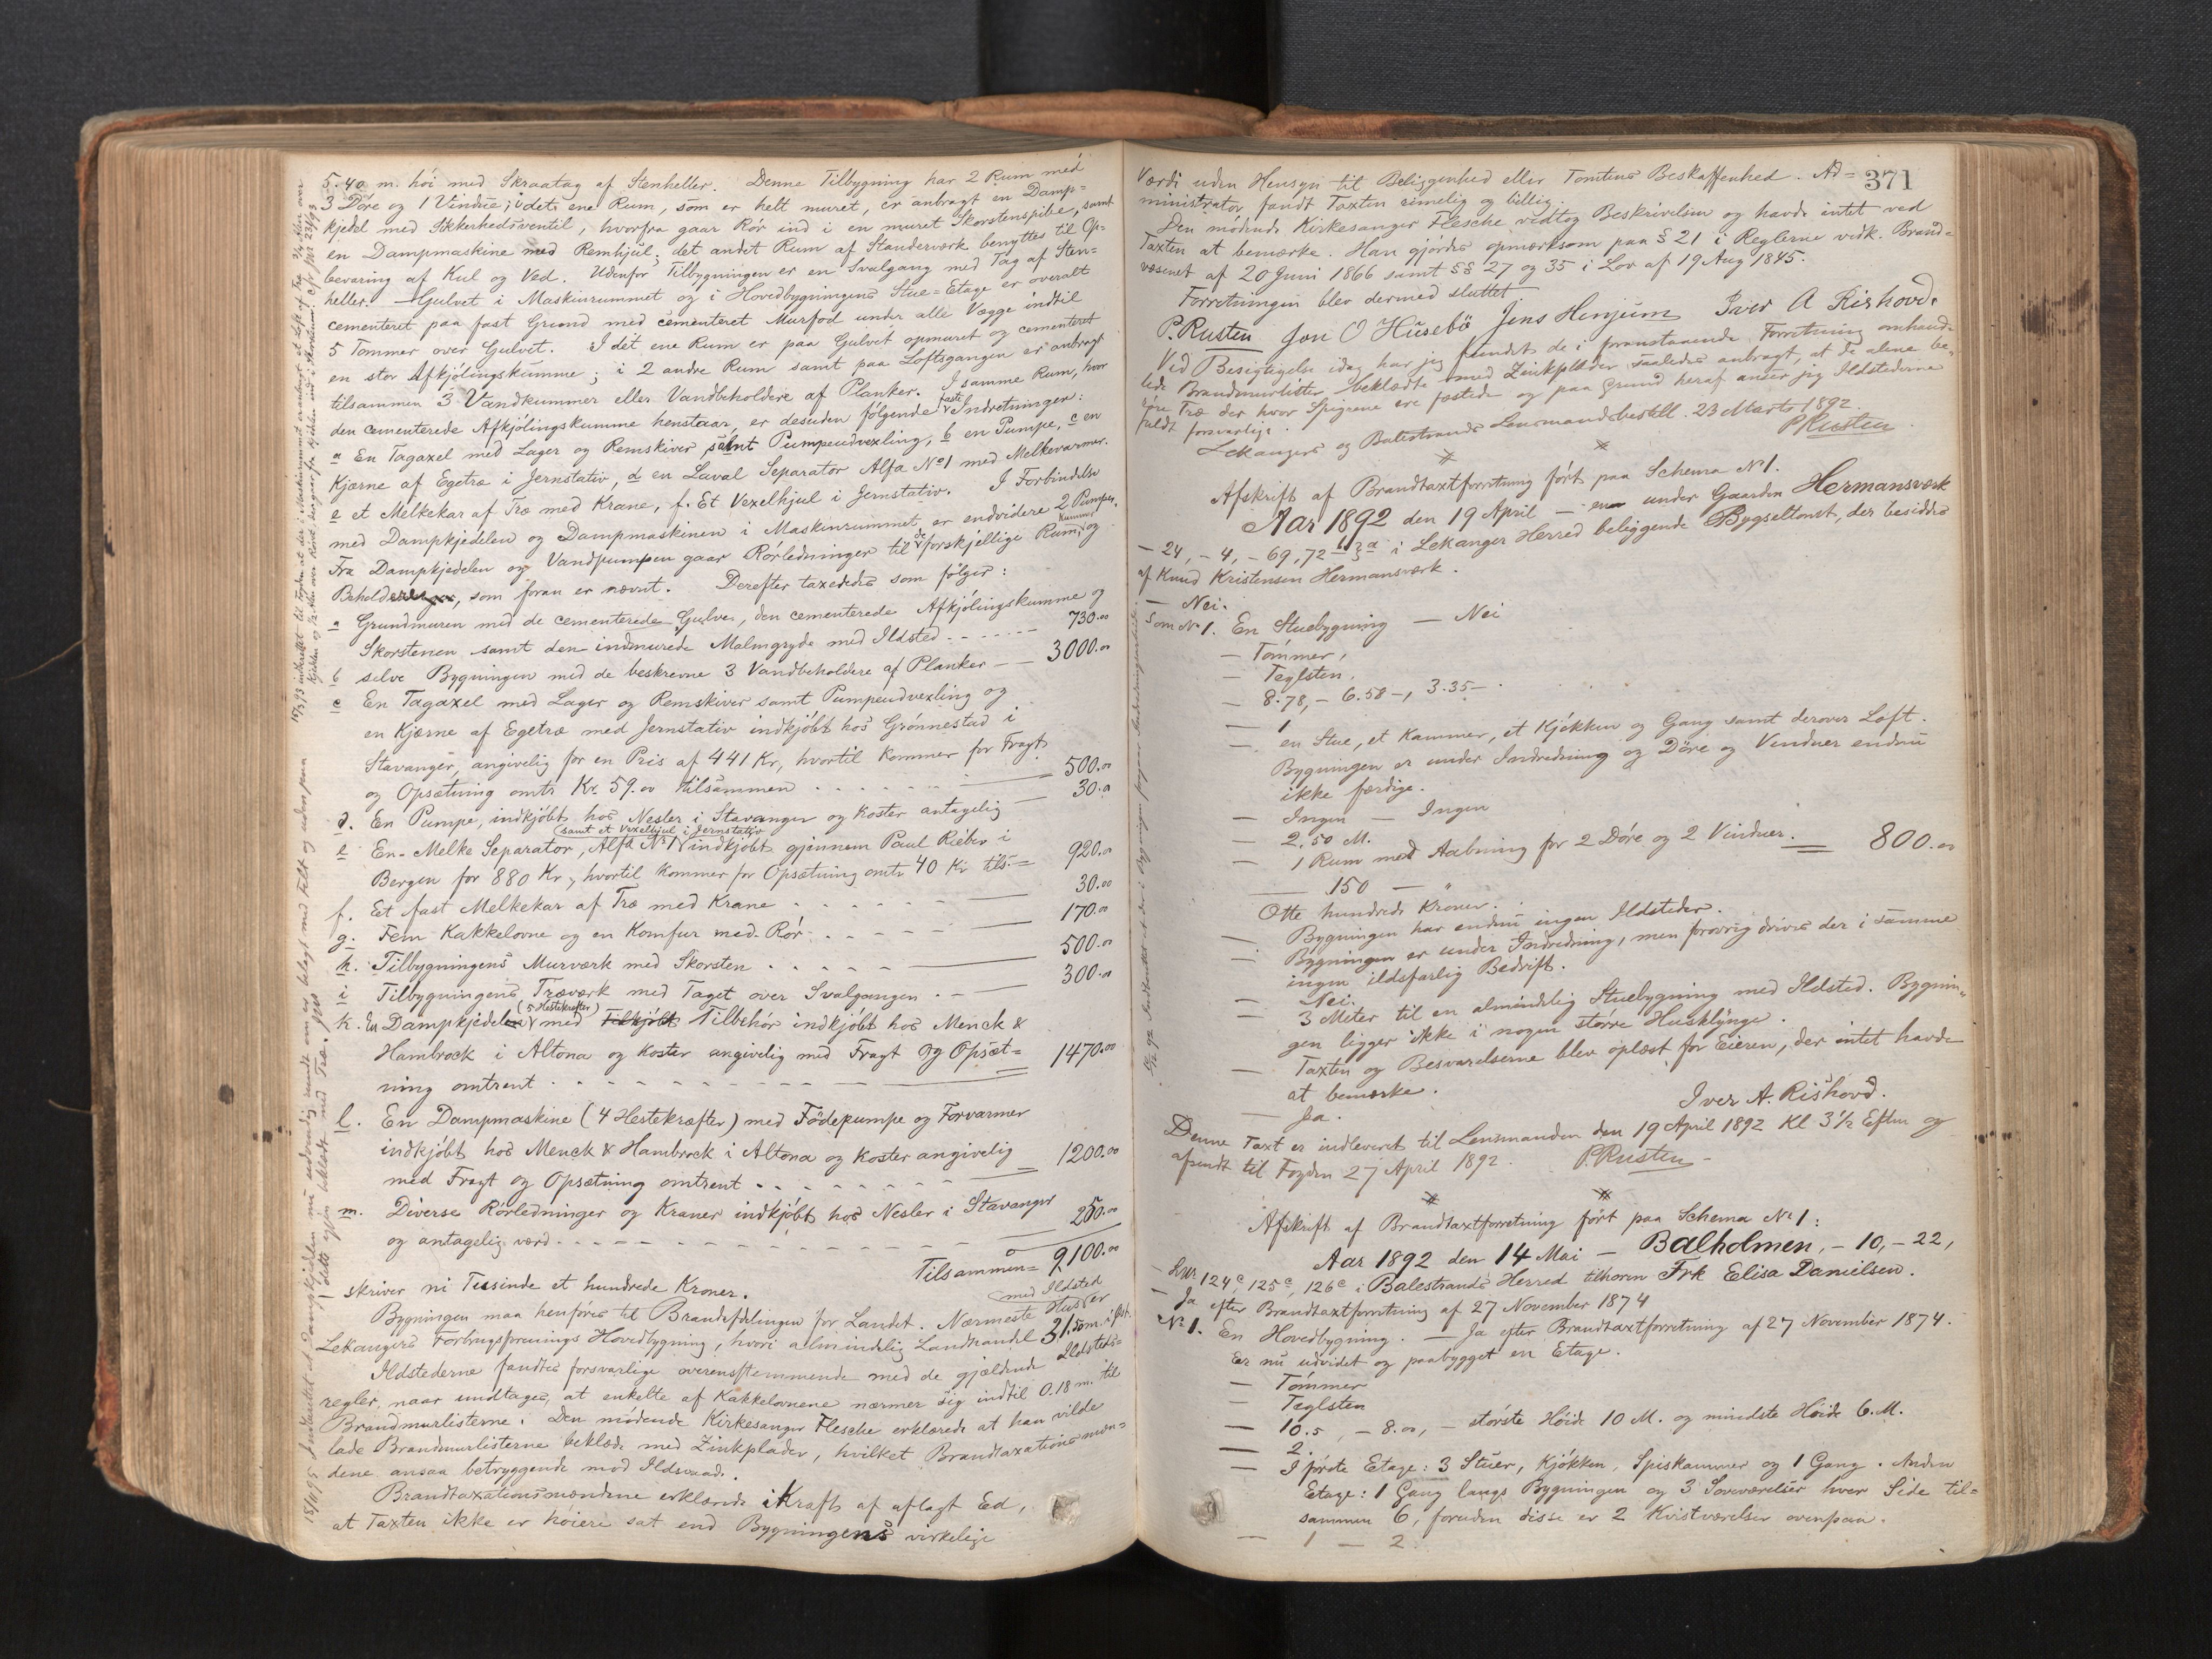 5.40 m. høi med Skraatag af Stenheller. Denne Tilbygning har 2 Rum med
3 Døre og 1 Vindue; i det ene Rum, som er helt muret, er anbragt en Damp=
kjedel med Sikkerhedsventil, hvorfra gaar Rør ind i en muret Skorstenspibe, samt
en Dampmaskine med Remhjul; det andet Rum af Standerværk benyttes til Op=
bevaring af Kul og Ved. Udenfor Tilbygningen er en Svalgang med Tag af Sten=
heller. — Gulvet i Maskinrummet og i Hovedbygningens Stue=Etage er overalt
cementeret paa fast Grund med cementeret Murfod under alle Vægge indtil
5 Tommer over Gulvet. I det ene Rum er paa Gulvet opmuret og cementeret
en stor Afkjølingskumme; i 2 andre Rum samt paa Loftsgangen er anbragt
tilsammen 3 Vandkummer eller Vandbeholdere af Planker. I samme Rum, hvor
den cementerede Afkjølingskumme henstaar, er desuden følgende faste Indretninger:
a En Tagaxel med Lager og Remskiver samt Pumpeudvexling, b en Pumpe, c en
Kjærne af Egetræ i Jernstativ, d en Laval Separator Alfa No 1 med Melkevarmer.
e et Melkekar af Træ med Krane, f. Et Vexelhjul i Jernstativ. I Forbindelse
med Dampkjedelen og Dampmaskinen i Maskinrummet er endvidere 2 Pumper.
Fra Dampkjedelen og Vandpumpen gaar Rørledninger til de forskjellige Rum, Kummer og
Beholdere, som foran er nævnt. Derefter taxeredes som følger:
a Grundmuren med de cementerede Gulve, den cementerede Afkjølingskumme og
Skorstenen samt den indmurede Malmgryde med Ildsted - - - - - - 730.00
b selve Bygningen med de beskrevne 3 Vandbeholdere af Planker — 3000.00
c En Tagaxel med Lager og Remskiver samt Pumpeudvexling og
en Kjærne af Egetræ med Jernstativ indkjøbt hos Grønnestad i
Stavanger, angivelig for en Pris af 441 Kr, hvortil kommer for Fragt
og Opsætning omtr Kr. 59.00 tilsammen . . . . . . 500.00
d. En Pumpe, indkjøbt hos Nesler i Stavanger og koster antagelig — 30.00
e En Melke Separator, Alfa No 1 (samt et Vexelhjul i Jernstativ indkjøbt gjennem Paul Rieber i
Bergen for 880 Kr, hvortil kommer for Opsætning omtr 40 Kr tils.= 920.00
f. Et fast Melkekar af Træ med Krane . . . . . . 30.00
g. Fem Kakkelovne og en Komfur med Rør . . . . . 170.00
h. Tilbygningens Murværk med Skorsten . . . . . 500.00
i. Tilbygningens Træværk med Taget over Svalgangen . — 300.00
k. En Dampkjedel (5 Hestekræfter) med Tilbehør indkjøbt hos Menck &
Hambrock i Altona og koster angivelig med Fragt og Opsæt=
ning omtrent . - - - - - - - - - 1470.00
l. En Dampmaskine (4 Hestekræfter) med Fødepumpe og Forvarmer
indkjøbt hos Menck & Hambrock i Altona og koster angivelig
med Fragt og Opsætning omtrent - - - - - - - 1200.00
m. Diverse Rørledninger og Kraner indkjøbt hos Nesler i Stavanger
og antagelig værd - - - - - - - - 250.00
Tilsammen = 9100.00
skriver ni Tusinde et hundrede Kroner.
Bygningen maa henføres til Brandafdelingen for Landet. Nærmeste Hus med Ildsted er
Lekangers Forbrugsforenings Hovedbygning, hvori almindelig Landhandel 31.50 m. i Øst.
Ildstederne fandtes forsvarlige overensstemmende med de gjældende Ildsteds=
regler, naar undtages, at enkelte af Kakkelovnene nærmer sig indtil 0.18 m. til
Brandmurlisterne. Den mødende Kirkesanger Flesche erklærede at han vilde
lade Brandmurlisterne beklæde med Zinkplader, hvilket Brandtaxationsmæn=
dene ansaa betryggende mod Ildsvaade.
Brandtaxationsmændene erklærede i Kraft af aflagt Ed,
at Taxten ikke er høiere sat end Bygningens virkelige
371
Værdi uden Hensyn til Beliggenhed eller Tomtens Beskaffenhed. Ad=
ministrator fandt Taxten rimelig og billig.
Den mødende Kirkesanger Flesche vedtog Beskrivelsen og havde intet ved
Taxten at bemærke. Han gjørdes opmærksom paa § 21 i Reglerne vedk. Brand=
væsenet af 20 Juni 1866 samt §§ 27 og 35 i Lov af 19 Aug 1845.
Forretningen blev dermed sluttet
P. Rusten Jon O Husebø Jens Henjum Iver A Rishovd.
Ved Besigtigelse idag har jeg fundet de i foranstaaende Forretning omhand=
lede Brandmurlister beklædte med Zinkplader saaledes anbragt, at de alene be=
røre Træ der hvor Spigrene ere fæstede og paa Grund heraf anser jeg Ildstederne
fuldt forsvarlige.
Lekangers og Balestrands Lensmandsbestill. 23 Marts 1892.
P Rusten
Afskrift af Brandtaxtforretning ført paa Schema No 1.
Aar 1892 den 19 April — under Gaarden Hermansværk
— 24, — 4, — 69, 72 i Lekanger Herred beliggende Bygseltomt, der besiddes
af Knud Kristensen Hermansværk.
— Nei.
Som No 1. En Stuebygning — Nei
— Tømmer,
— Teglsten,
— 8.78, — 6.58 —, 3.35 — .
— 1
— en Stue, et Kammer, et Kjøkken og Gang samt derover Loft.
Bygningen er under Indredning og Døre og Vinduer endnu
ikke færdige.
— Ingen — Ingen
— 2.50 M.
— 1 Rum med Aabning for 2 Døre og 2 Vinduer. — 800.00
— 150 — "
Otte hundrede Kroner.
— Bygningen har endnu ingen Ildsteder.
— Bygningen er under Indredning, men forøvrig drives der i samme
ingen ildsfarlig Bedrift.
— Nei.
— 3 Meter til en almindelig Stuebygning med Ildsted. Bygnin=
gen ligger ikke i nogen større Husklynge.
— Taxten og Besvarelserne blev oplæst for Eieren, der intet havde
at bemærke.
— Ja.
Iver A. Rishovd.
Denne Taxt er indleveret til Lensmanden den 19 April 1892 Kl 3 1/2 Eftm og
afsendt til Fogden 27 April 1892. P. Rusten
Afskrift af Brandtaxtforretning ført paa Schema No 1:
Aar 1892 den 14 Mai — Balholmen, — 10, — 22,
— 124c, 125c, 126c i Balestrands Herred tilhører Frk Elisa Danielsen.
— Ja efter Brandtaxtforretning af 27 November 1874
No 1. En Hovedbygning. — Ja efter Brandtaxtforretning af 27 November 1874.
Er nu udvidet og paabygget en Etage.
— Tømmer
— Teglsten
— 10.5, — 8.00, — største Høide 10 M. og mindste Høide 6. M.
— 2.
— I første Etage: 3 Stuer, Kjøkken, Spiskammer og 1 Gang. Anden
Etage: 1 Gang langs Bygningen og 3 Soveværelser hver Side til=
sammen 6, foruden disse er 2 Kvistværelser ovenpaa.
— 1 — 2